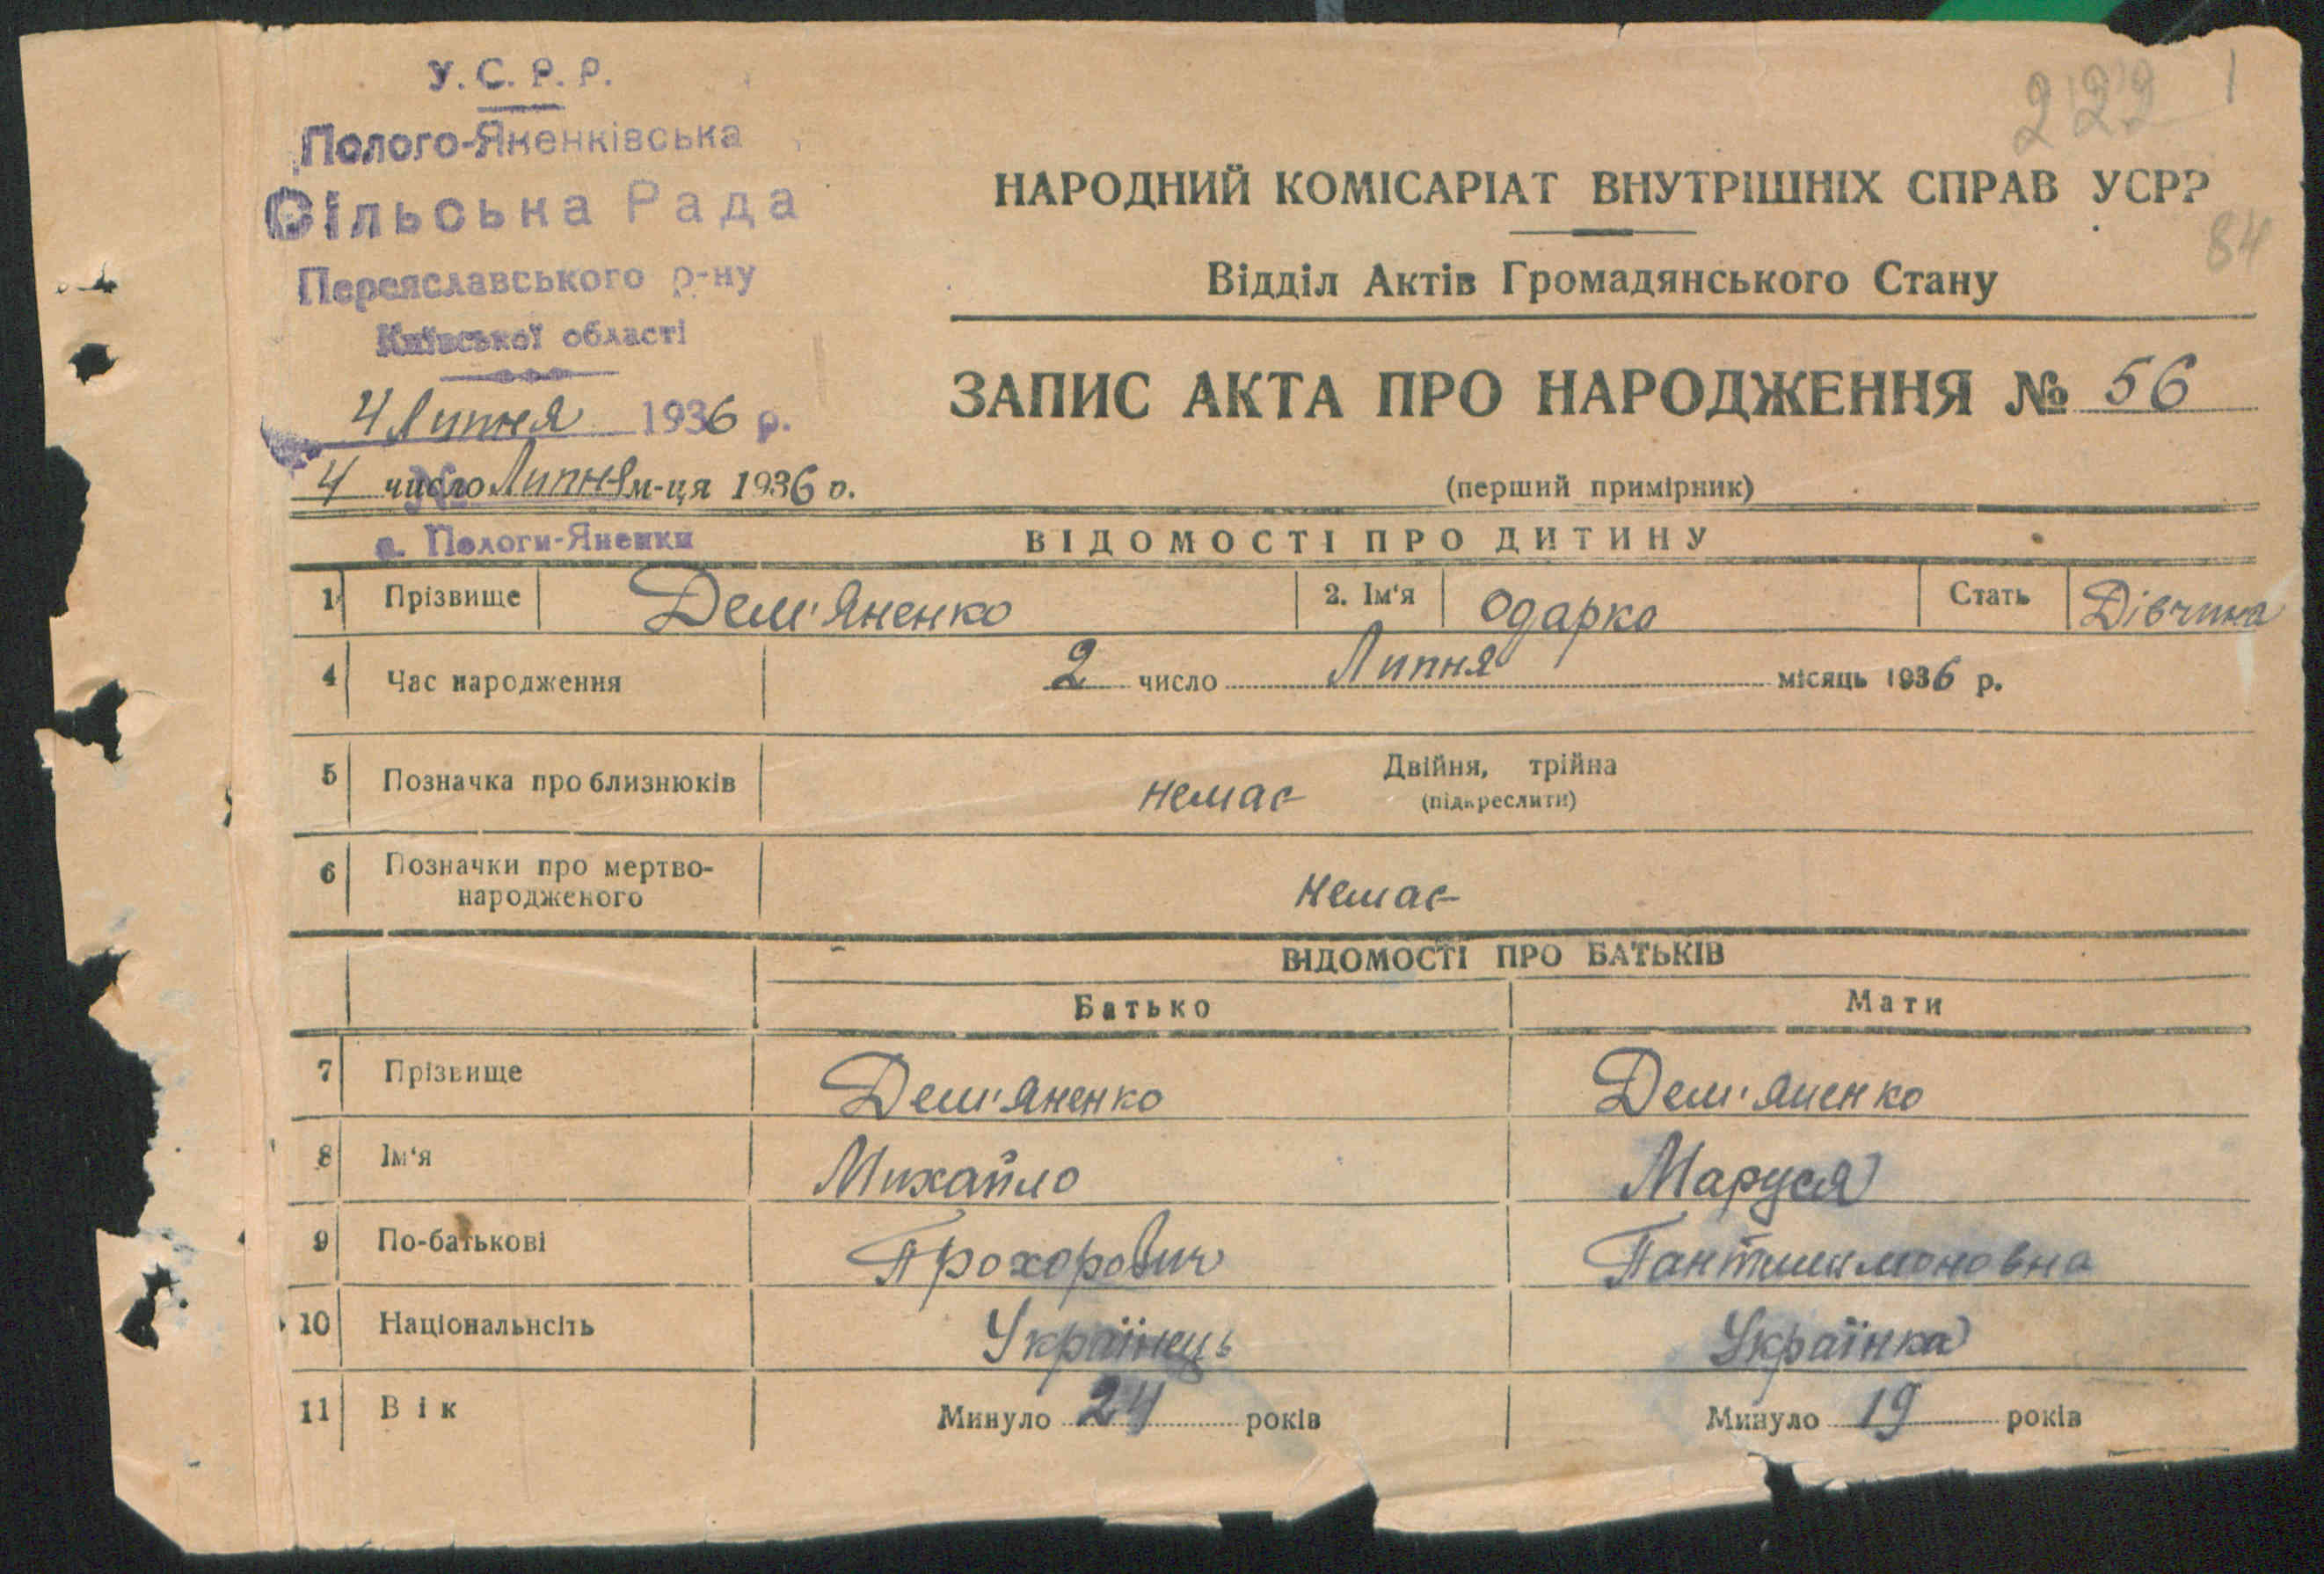 У.С.Р.Р.
Полого-Яненківська
Сільська Рада
Переяславського р-ну
Київської області
4 Липня 1936 р.
4 число Липня м-ця 1936 р.
с. Пологи-Яненки
222 1
84
НАРОДНИЙ КОМІСАРІАТ ВНУТРІШНІХ СПРАВ УСРР
Відділ Актів Громадянського Стану
ЗАПИС АКТА ПРО НАРОДЖЕННЯ № 56
(перший примірник)
ВІДОМОСТІ ПРО ДИТИНУ
1 Прізвище Дем'яненко 2. Ім'я Одарка Стать Дівчина
4 Час народження 2 число Липня місяць 1936 р.
5 Позначка про близнюків немає Двійня, трійна
(підкреслити)
6 Позначки про мертво-
народженого немає
ВІДОМОСТІ ПРО БАТЬКІВ
Батько Мати
7 Прізвище Дем'яненко Дем'яненко
8 Ім'я Михайло Маруся
9 По-батькові Прохорович Пантилимоновна
10 Національнсіть Українець Українка
11 Вік Минуло 24 років Минуло 19 років